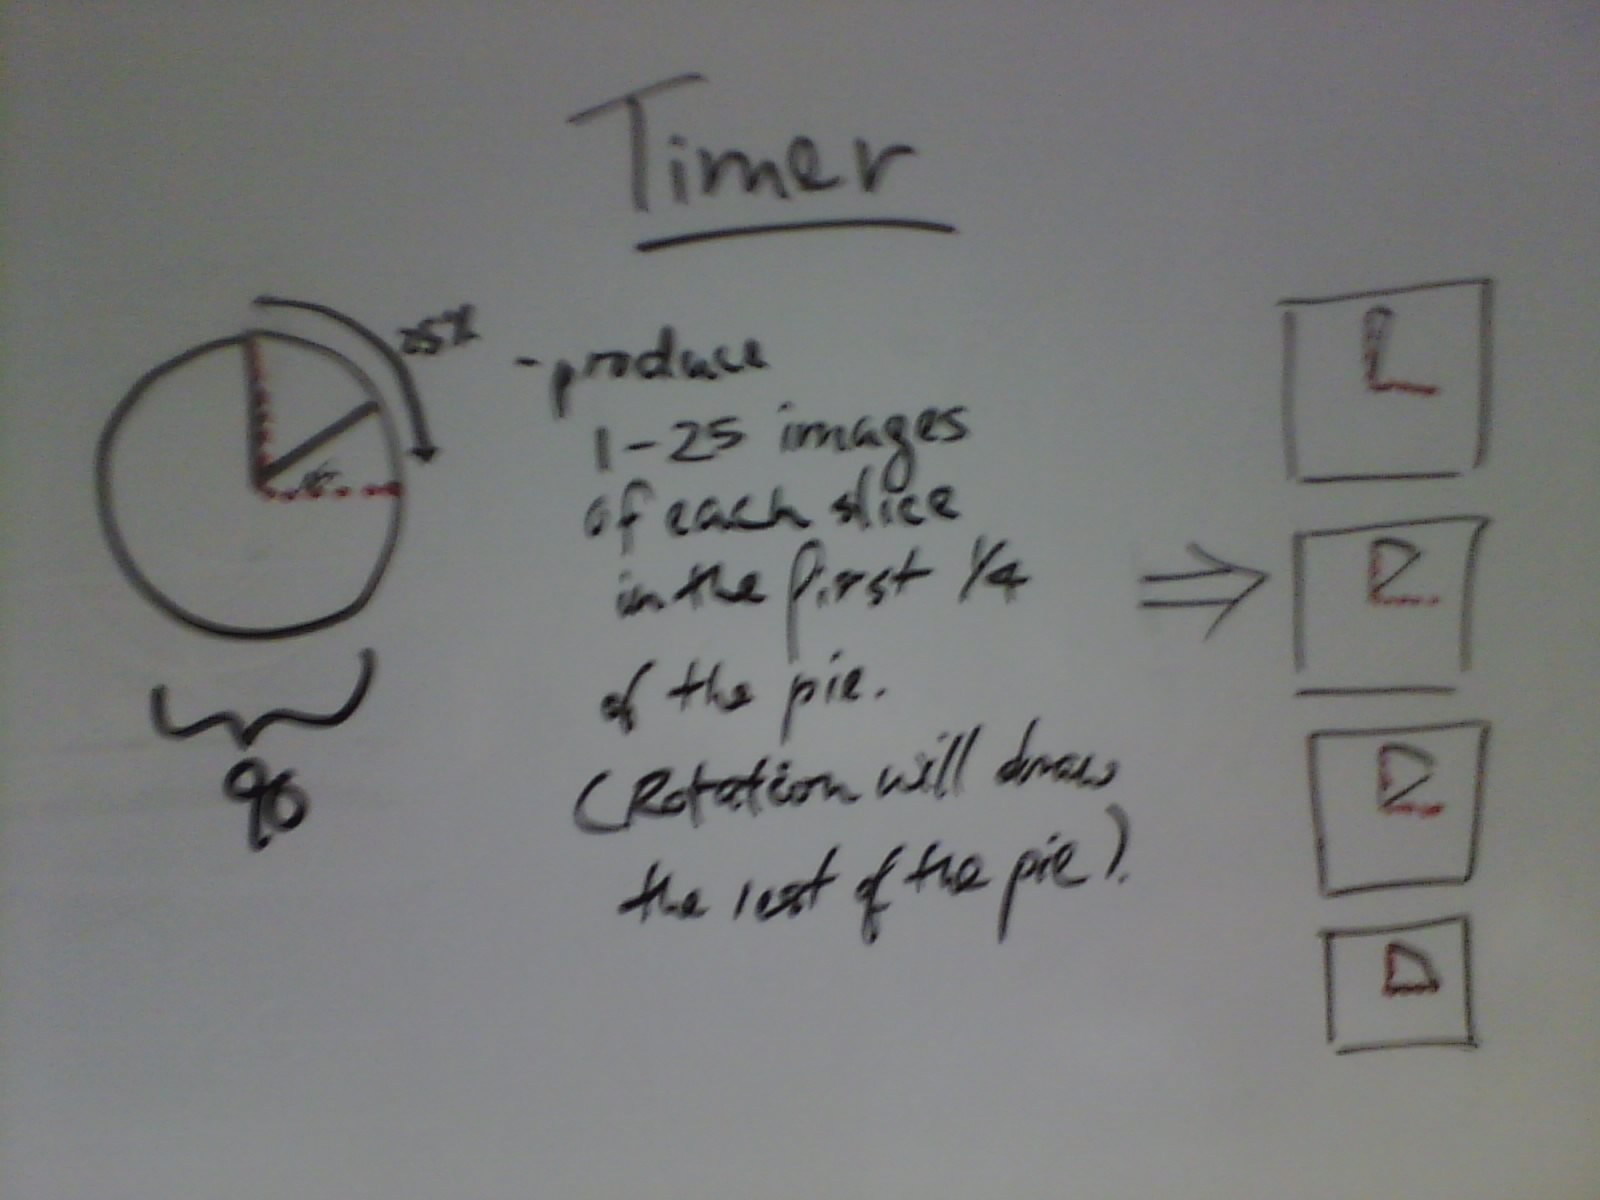 Timer
25%
-produce
1-25 images
of each slice
in the first 1/4
of the pie.
(Rotation will draw
the rest of the pie).